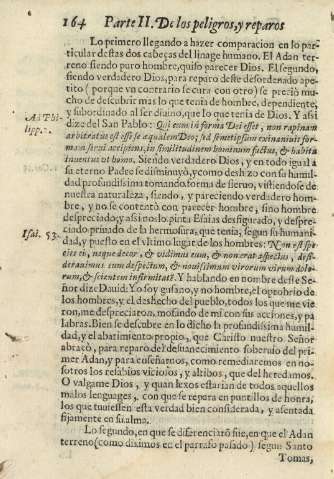 164 Parte II. De los peligros, y reparos
Lo primero llegando a hazer comparacion en lo par-
ticular destas dos cabeças del linage humano. El Adan ter-
reno siendo puro hombre, quiso parecer Dios. El segundo,
siendo verdadero Dios, para reparo deste desordenado ape-
tito (porque vn contrario se cura con otro) se preciò mu-
cho de descubrir mas lo que tenia de hombre, dependiente,
y subordinado al ser diuino, que lo que tenia de Dios. Y assi
Ad Phi-
lipp. 2.
dize del San Pablo: Qui cum in forma Dei esset, non rapinam
arbitratus est esse se equalem Deo; sed semetipsum exinaniuit for-
mam serui accipiens, in similitudinem hominum factus, & habitu
inuentus vt homo. Siendo verdadero Dios, y en todo igual à
su eterno Padre se disminuyò, y como deshizo con su humil-
dad profundissima tomando forma de sieruo, vistiendose de
nuestra naturaleza, siendo, y pareciendo verdadero hom-
bre, y no se contentò con parecer hombre, sino hombre
despreciado; y assi nos lo pinta Esaias desfigurado, y despre-
ciado, priuado de la hermosura, que tenia, segun su humani-
Isai. 53.
dad, y puesto en el vltimo lugar de los hombres: Non est spe-
cies ei, neque decor, & vidimus eum, & non erat aspectus, desi-
derauimus eum despectum, & nouissimum virorum virum dolo-
rum, & scientem infirmitatem. Y hablando en nombre deste Se-
ñor dize Dauid: Yo soy gusano, y no hombre, el oprobrio de
los hombres, y el deshecho del pueblo, todos los que me vie-
ron, me despreciaron, mofando de mi con sus acciones, y pa-
labras. Bien se descubre en lo dicho la profundissima humil-
dad, y el abatimiento propio, que Christo nuestro Señor
abraçò, para reparo del desuanecimiento soberuio del pri-
mer Adan, y para enseñarnos, como remediaremos en no-
sotros los resabios viciosos, y altibos, que del heredamos.
O valgame Dios, y quan lexos estarian de todos aquellos
malos lenguages, con que se repara en puntillos de honra,
los que tuuiessen esta verdad bien considerada, y assentada
fijamente en su alma.
Lo segundo, en que se diferenciarõ fue, en que el Adan
terreno (como diximos en el parrafo passado) segun Santo
Tomas,